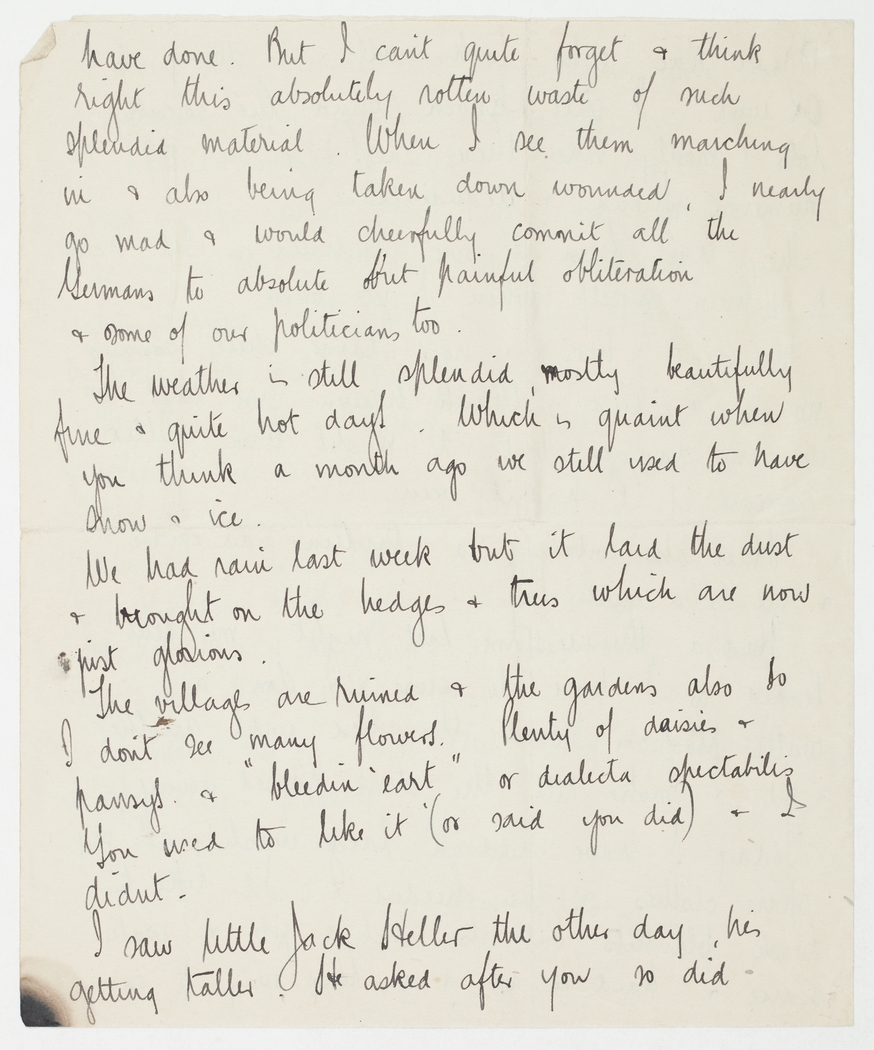 have done. But I can't quite forget & think
right this absolutely rotten waste of such
splendid material. When I see them marching
in & also being taken down wounded, I nearly
go mad & would cheerfully commit all the
Germans to absolute but painful obliteration
& some of our politicians too.
The weather is still splendid, mostly beautifully
fine & quite hot days. Which is quaint when
you think a month ago we still used to have
snow & ice.
We had rain last week but it laid the dust
& brought on the hedges & trees which are now
just glorious.
The villages are ruined & the gardens also so
I don't see many flowers. Plenty of daisies &
pansys. & "bleedin 'eart" or dialecta spectabilis
You used to like it (or said you did) & I
didnt.
I saw little Jack Heller the other day, his
getting taller. He asked after you so did